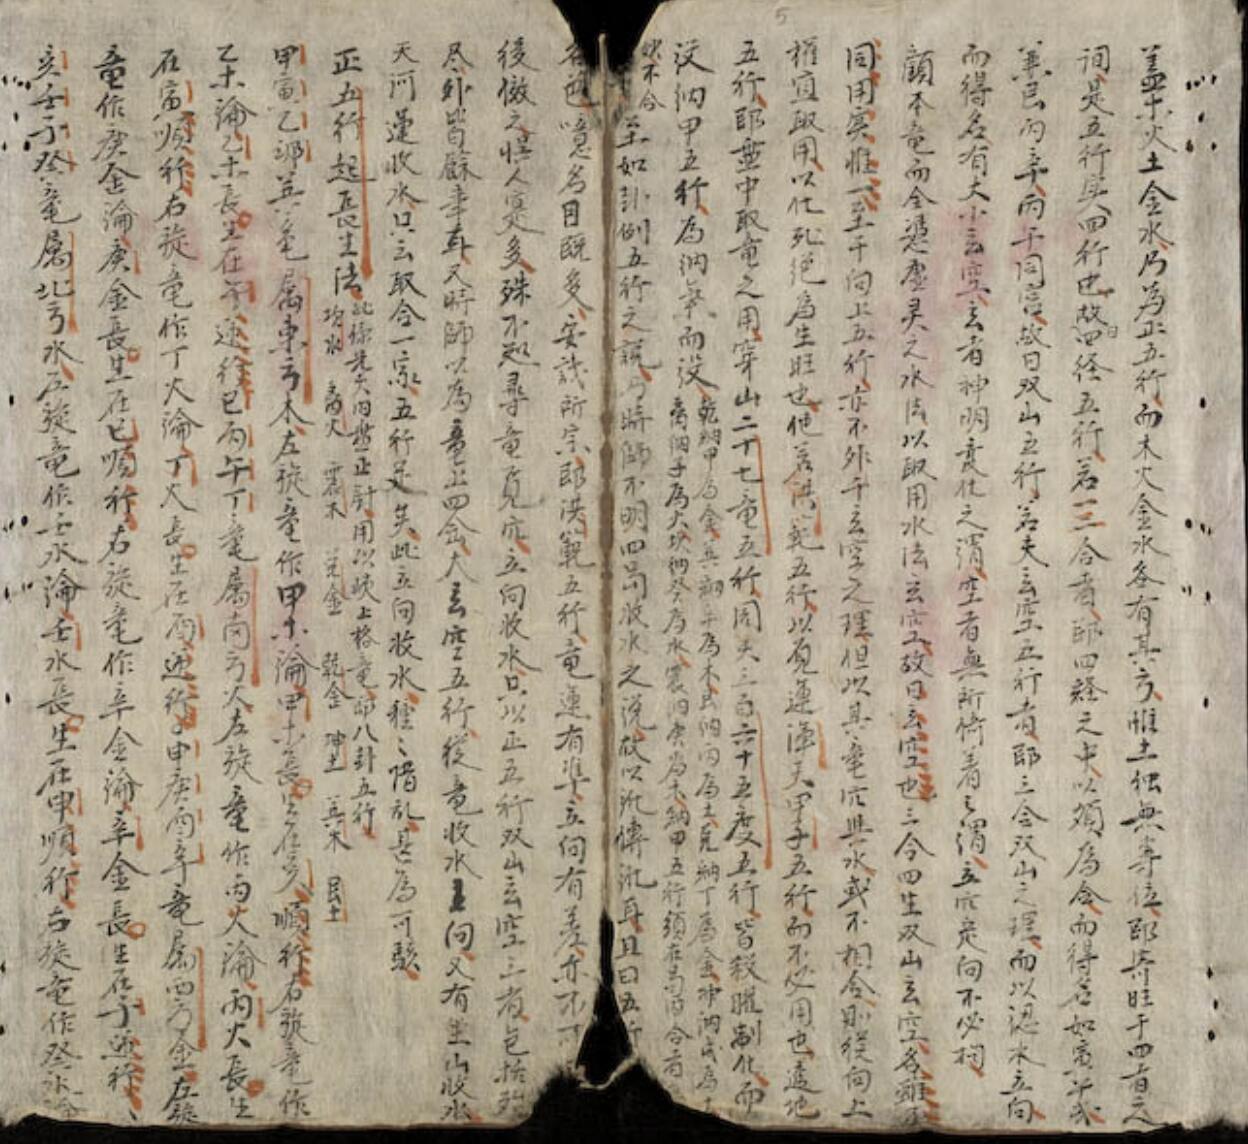 盖木火土金水乃為正五行而木火金水各有其方惟土独無專位即寄旺于四
詞是五行與四行也故四经五行若三合者即四經之中以類為合而得名如寅午戌
艮丙辛丙干同宫故曰双山五行若夫玄空五行者即三合双山之理而以認水立向
而得名有大小玄空玄者神明变化之謂空者無所倚着之謂立穴定向不必拘
顧本竜而全憑虛灵之水法以取用水法玄空故曰玄空也三合四生双山玄空名雖
同用实惟一至于向上五行亦不外于玄空之理但以其竜穴與水或不相合則從向上
權宜取用以化死绝為生旺也他若洪範五行以覓運渾天甲子五行而不必用也遠地
五行即盡中取竜之用穿山二十七竜五行周天三百六十五度五行皆殺曜制化而
設納甲五行為納氣而設
乾納甲為金巽納辛為木艮納丙為土兑納丁為金坤納乙為土
离納壬為火坎納癸為水震納庚為木納甲五行須在局內合者
然不合
至如卦例五行之說乃時師不明四局收水之說故以訛傳訛耳且曰五行
名色噫名目既多安識所宗即洪範五行竜運有準立向有差亦不
後儆之悞人寔多殊不知尋竜覓穴立向收水只以正五行双山玄空三者包括
尽外皆蘇弃耳又時師以為竜正四金大玄空五行從竜收水立向又有坐山收水
天河運收水只云取合一家五行足矣此立向收水種〻溷乱甚為可駭
正五行起長生法
此係先天內盤正針用以頭上格竜即八卦五行
坎水 离火 震木 兑金 乾金 坤土 巽木 艮土
甲寅乙卯巽竜属東方木左旋竜作甲木論甲木長生在亥順行右旋竜作
乙木論乙木長生在午逆行巳丙午丁竜属南方火左旋竜作丙火論丙火長生
在寅順行右旋竜作丁火論丁火長生在酉逆行申庚酉辛竜属西方金左旋
竜作庚金論庚金長生在巳順行右旋竜作辛金論辛金長生在子逆行
亥壬子癸竜属北方水左旋竜作壬水論壬水長生在申順行右旋竜作癸水論